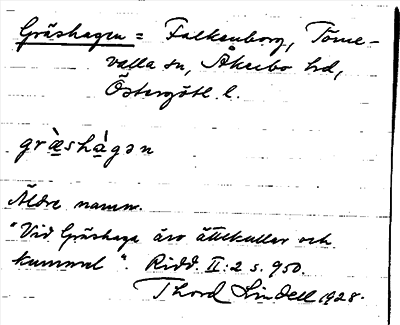 Gräshagen = Falkenborg, Törne-
valla sn, Åkerbo hd,
Östergötl. l.
græ̀shàgən
Äldre namn.
"Vid Gräshaga äro ättekullar och
kummel". Ridd. II:2 s. 950.
Thord Lindell 1928.